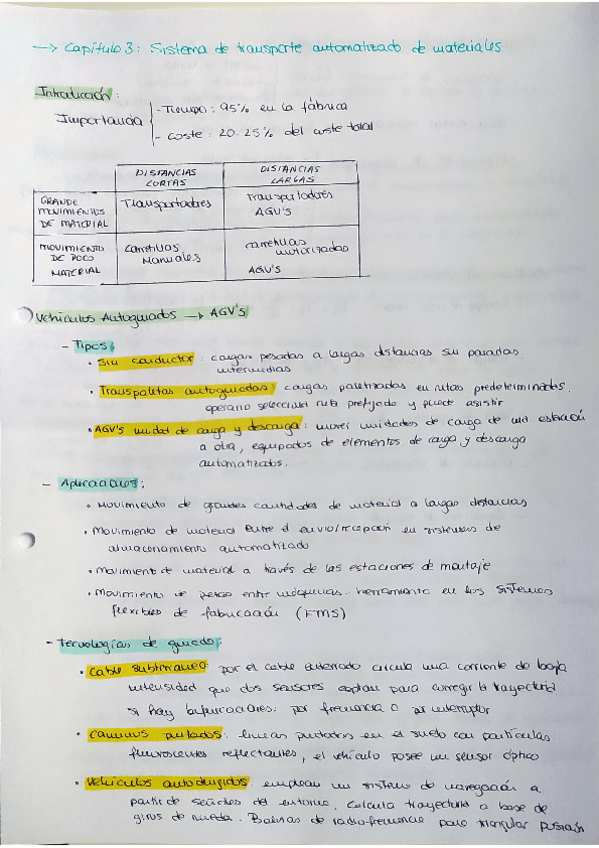 → Capítulo 3: Sistema de transporte automatizado de materiales
Introducción:
Importancia
- Tiempo: 95% en la fábrica
- coste: 20-25% del coste total
DISTANCIAS CORTAS
DISTANCIAS LARGAS
GRANDE MOVIMIENTOS DE MATERIAL
Transportadores
Transportadores
AGV'S
MOVIMIENTO DE POCO MATERIAL
Carretillas Manuales
carretillas motorizadas
AGV'S
Vehículos Autoguiados → AGV'S
- Tipos:
• Sin conductor: cargas pesadas a largas distancias sin paradas
intermedias
• Transpaletas autoguiadas: cargas paletizadas en rutas predeterminadas,
operario selecciona ruta prefijado y puede asistir
• AGV's unidad de carga y descarga: mover unidades de carga de una estación
a otra, equipados de elementos de carga y descarga
automatizados.
- Aplicaciones:
• Movimiento de grandes cantidades de material a largas distancias
• Movimiento de material entre el envío/recepción en sistemas de
almacenamiento automatizado
• Movimiento de material a través de las estaciones de montaje
• Movimiento de piezas entre máquinas-herramienta en los sistemas
flexibles de fabricación (FMS)
- Tecnologías de guiado:
• Cable subterráneo: por el cable enterrado circula una corriente de baja
intensidad que dos sensores captan para corregir la trayectoria
si hay bifurcaciones: por frecuencia o por interruptor
• Caminos pintados: líneas pintadas en el suelo con partículas
fluorescentes reflectantes, el vehículo posee un sensor óptico
• Vehículos autodirigidos: emplean un sistema de navegación a
partir de señales del entorno. Calcula trayectoria a base de
giros de rueda. Balizas de radio-frecuencia para triangular posición